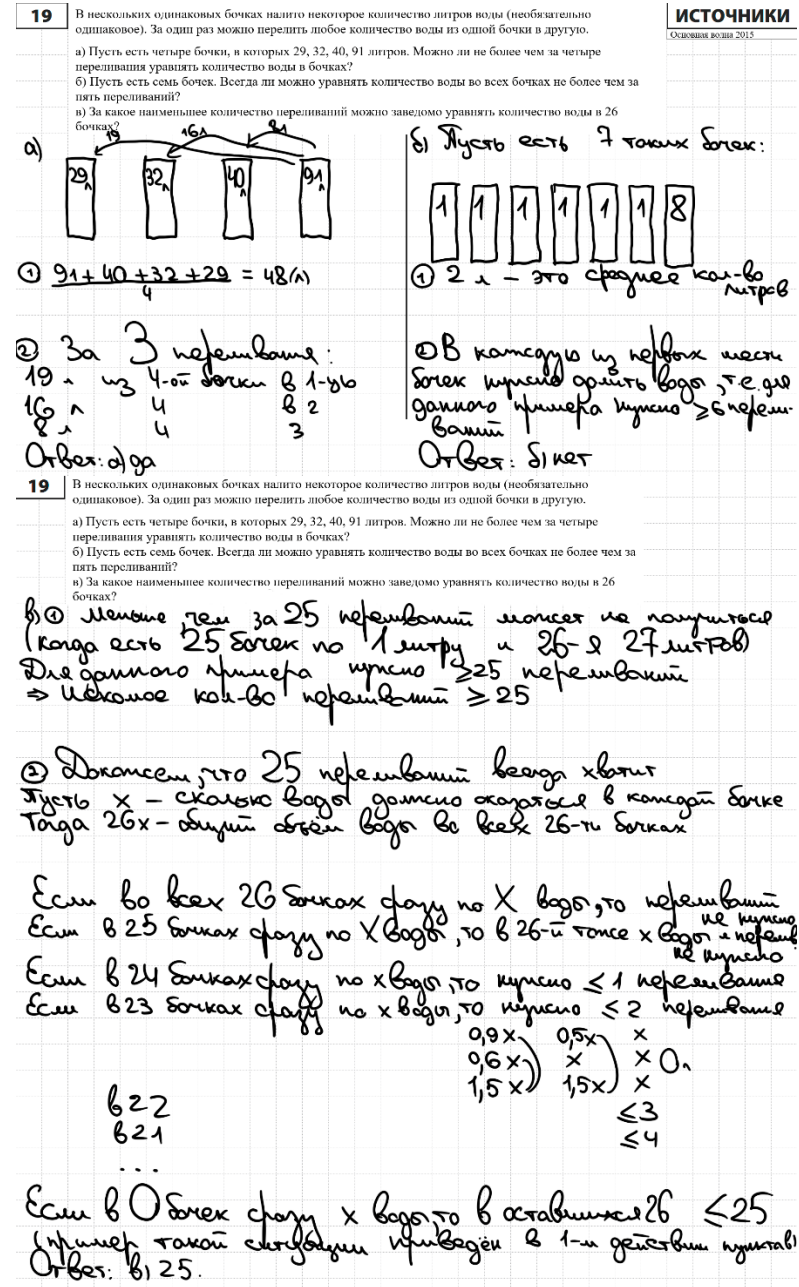 19
В нескольких одинаковых бочках налито некоторое количество литров воды (необязательно
одинаковое). За один раз можно перелить любое количество воды из одной бочки в другую.
ИСТОЧНИКИ
Основная волна 2015
а) Пусть есть четыре бочки, в которых 29, 32, 40, 91 литров. Можно ли не более чем за четыре
переливания уравнять количество воды в бочках?
б) Пусть есть семь бочек. Всегда ли можно уравнять количество воды во всех бочках не более чем за
пять переливаний?
в) За какое наименьшее количество переливаний можно заведомо уравнять количество воды в 26
бочках?
а)
19 16л 8л
29л 32л 40л 91л
① 91+40+32+29 / 4 = 48(л)
② За 3 переливания:
19 л из 4-ой бочки в 1-ую
16 л 4 в 2
8 л 4 3
Ответ: а) да
б) Пусть есть 7 таких бочек:
1 1 1 1 1 1 8
① 2 л – это среднее кол-во
литров
② В каждую из первых шести
бочек нужно долить воды, т.е. для
данного примера нужно ≥6 перели-
ваний
Ответ: б) нет
19
В нескольких одинаковых бочках налито некоторое количество литров воды (необязательно
одинаковое). За один раз можно перелить любое количество воды из одной бочки в другую.
а) Пусть есть четыре бочки, в которых 29, 32, 40, 91 литров. Можно ли не более чем за четыре
переливания уравнять количество воды в бочках?
б) Пусть есть семь бочек. Всегда ли можно уравнять количество воды во всех бочках не более чем за
пять переливаний?
в) За какое наименьшее количество переливаний можно заведомо уравнять количество воды в 26
бочках?
в) ① Меньше, чем за 25 переливаний может не получиться
(когда есть 25 бочек по 1 литру и 26-я 27 литров)
Для данного примера нужно ≥25 переливаний
⇒ Искомое кол-во переливаний ≥ 25
② Докажем, что 25 переливаний всегда хватит
Пусть x – сколько воды должно оказаться в каждой бочке
Тогда 26x – общий объём воды во всех 26-ти бочках
Если во всех 26 бочках сразу по X воды, то переливаний
не нужно
Если в 25 бочках сразу по X воды, то в 26-й тоже x воды и перелив.
не нужно
Если в 24 бочках сразу по x воды, то нужно ≤ 1 переливание
Если в 23 бочках сразу по x воды, то нужно ≤ 2 переливания
0,9x 0,5x x
0,6x x x 0л
1,5x 1,5x x
в 22 ≤3
в 21 ≤4
...
Если в 0 бочек сразу x воды, то в оставшихся 26 ≤25
(пример такой ситуации приведён в 1-м действии пункта в)
Ответ: в) 25.